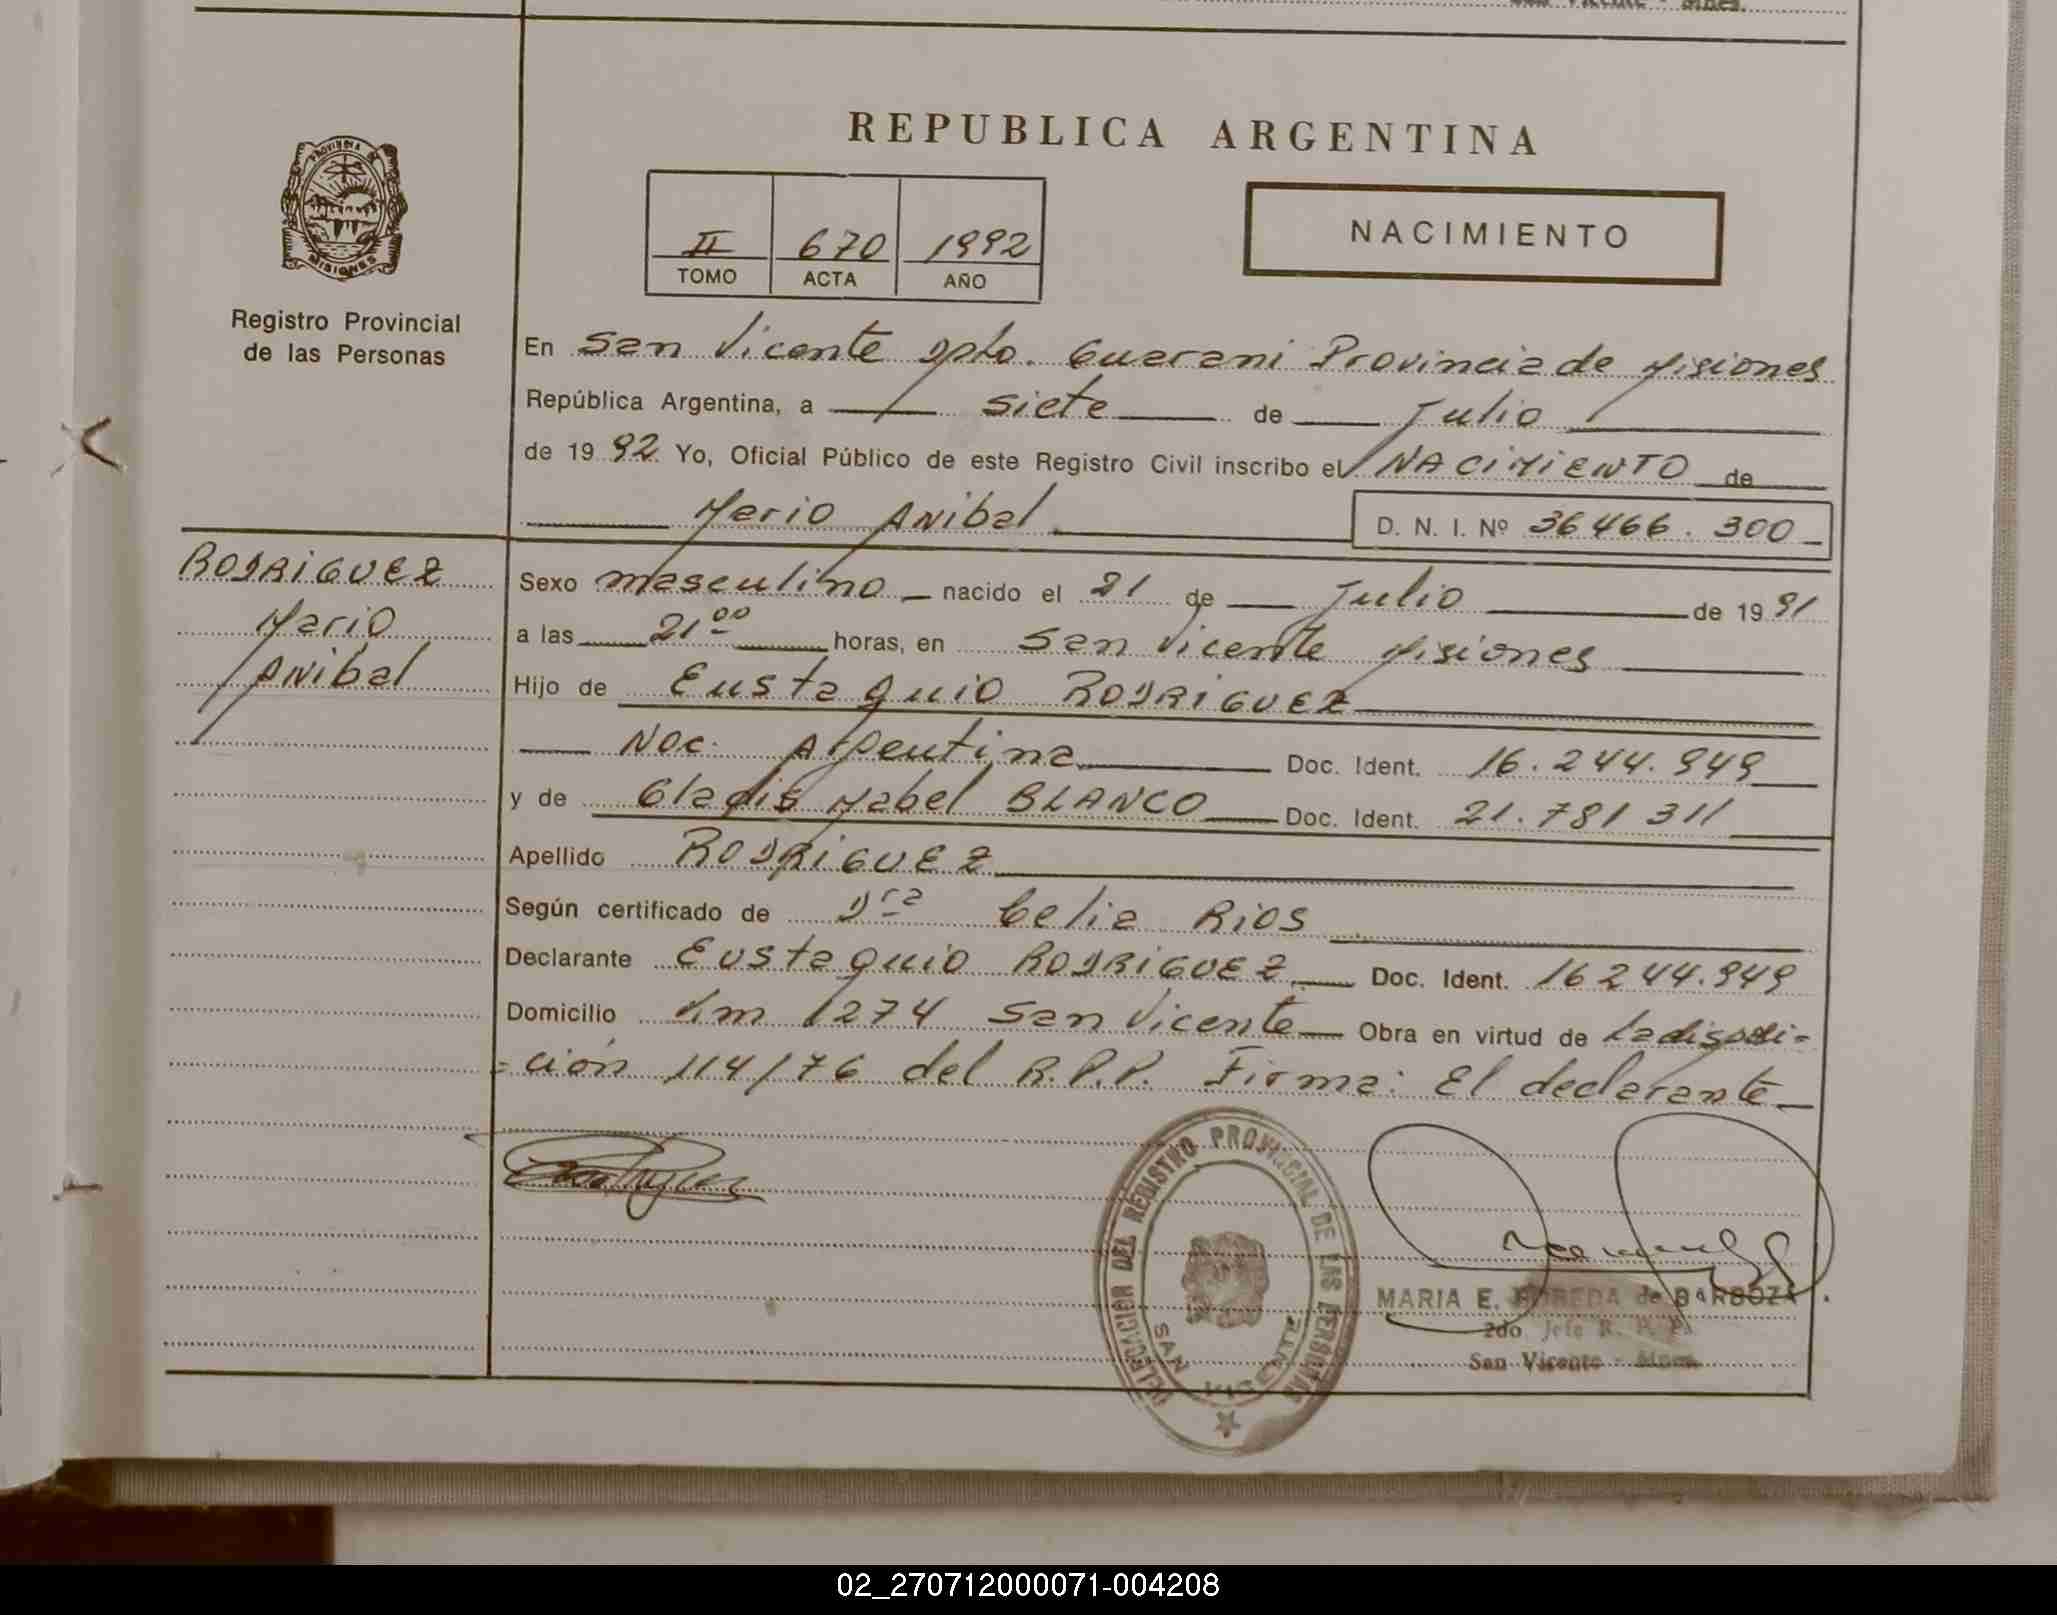 REPUBLICA ARGENTINA
PROVINCIA DE
MISIONES
Registro Provincial
de las Personas
II 670 1992
TOMO ACTA AÑO
NACIMIENTO
En San Vicente Dpto. Guarani Provincia de Misiones
República Argentina, a siete de Julio
de 1992 Yo, Oficial Público de este Registro Civil inscribo el NACIMIENTO de
Mario Anibal D. N. I. Nº 36466.300
RODRIGUEZ
Mario
Anibal
Sexo masculino nacido el 21 de Julio de 1991
a las 21 00 horas, en San Vicente Misiones
Hijo de Eustaquio RODRIGUEZ
Nac. Argentina Doc. Ident. 16.244.949
y de Gladis Mabel BLANCO Doc. Ident. 21.781 311
Apellido RODRIGUEZ
Según certificado de Dra Celia Rios
Declarante Eustaquio RODRIGUEZ Doc. Ident. 16244.949
Domicilio Km 1274 San Vicente Obra en virtud de La disposi=
=ción 114/76 del R.P.P. Firma: El declarante
DELEGACION DEL REGISTRO PROVINCIAL DE LAS PERSONAS
SAN VICENTE
MARIA E. de BARBOZA
2do. Jefe R. P. P.
San Vicente - Mnes.
02_270712000071-004208